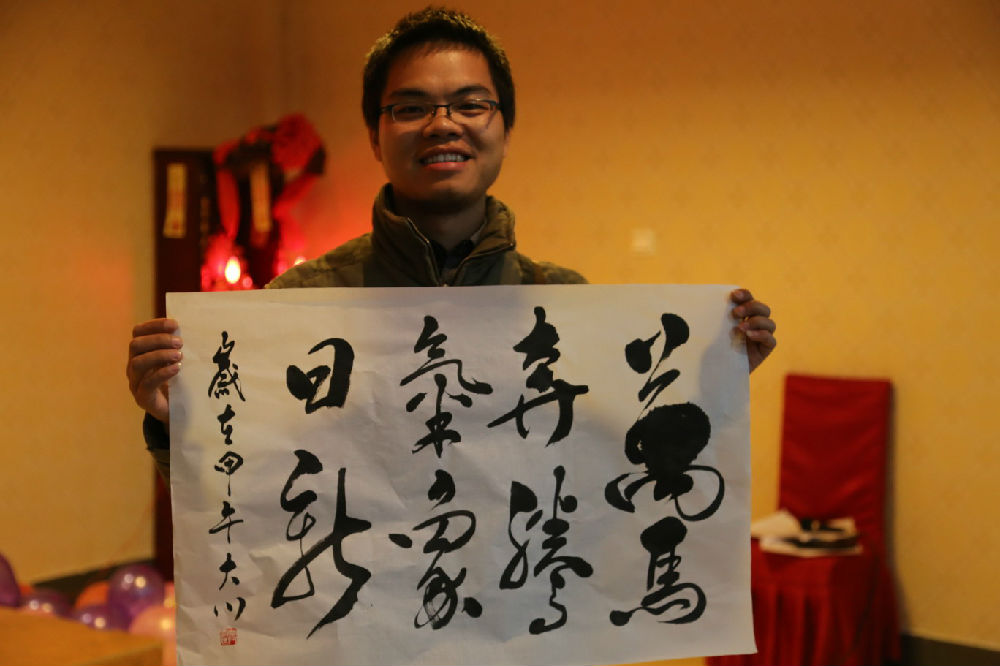 萬馬
奔騰
氣象
日新
歲在甲午大川